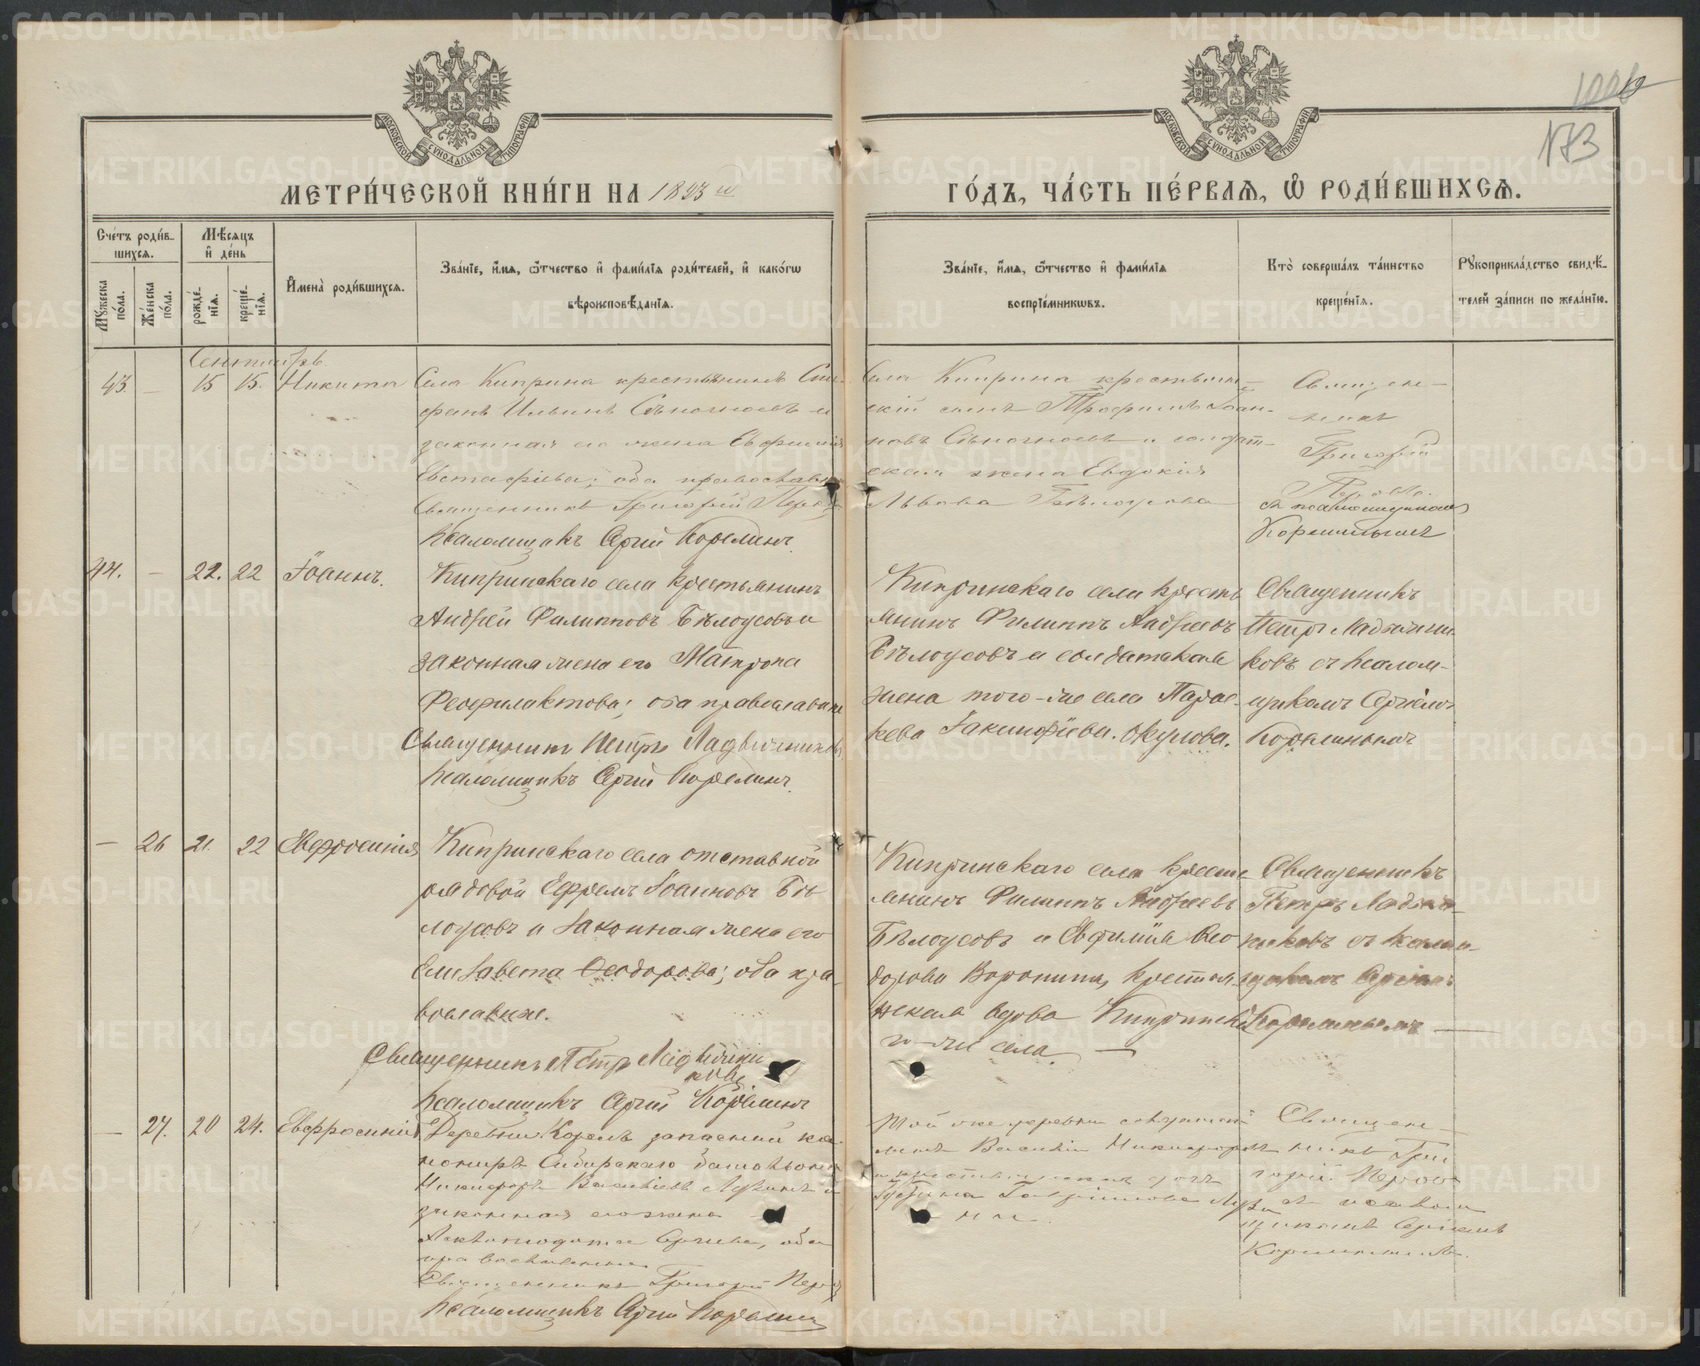 МЕТРИ́ЧЕСКОЙ КНИ́ГИ НА 1893 й
ГО́ДЪ, ЧА́СТЬ ПЕ́РВАѦ, Ѡ҆ РОДИ́ВШИХСѦ.
1006
173
МОСКОВСКОЙ СУНОДАЛЬНОЙ ТИПОГРАФІИ
МОСКОВСКОЙ СУНОДАЛЬНОЙ ТИПОГРАФІИ
Сче́тъ роди́вшихсѧ.
Мꙋ́жеска по́ла.
Же́нска по́ла.
Мѣ́сѧцъ и҆ де́нь
рожде́нїѧ.
креще́нїѧ.
И҆мена̀ роди́вшихсѧ.
Зва́нїе, и҆́мѧ, ѻ҆́тчество и҆ фами́лїѧ роди́телей, и҆ како́гѡ
вѣроисповѣ́данїѧ.
Зва́нїе, и҆́мѧ, ѻ҆́тчество и҆ фами́лїѧ
воспрїе́мникѡвъ.
Кто̀ соверша́лъ та́инство
креще́нїѧ.
Рꙋкоприкла́дство свидѣ́телей за́писи по жела́нїю.
Сентябрь
43 — 15 15. Никита
Села Киприна крестьянинъ Сте-
фанъ Ильинъ и
законная его жена Евфимия
Евстафіева; оба православн.
Священникъ Григорій
Псаломщикъ Сергій Корелинъ.
Села Киприна крестьян-
скій сынъ Трофимъ Іоан-
новъ и солдат-
ская жена Евдокія
Львова Бѣлоусова
Священ-
никъ
Григорій
съ псаломщикомъ
Корелинымъ
44. — 22. 22 Іоаннъ.
Кипринскаго села крестьянинъ
Андрей Филипповъ Бѣлоусовъ и
законная жена его Матрона
Феофилактова; оба православные
Священникъ Петръ Ладыжниковъ
Псаломщикъ Сергій Корелинъ.
Кипринскаго села кресть
янинъ Филиппъ Андреевъ
Бѣлоусовъ и солдатская
жена того-же села Парас-
кева Іакинфіева Окулова.
Священникъ
Петръ Ладыжни
ковъ съ псалом-
щикомъ Сергіемъ
Корелинымъ
— 26 21. 22 Евфросинія
Кипринскаго села отставной
рядовой Ефремъ Іоанновъ Бѣ-
лоусовъ и законная жена его
Елисавета Феодорова; оба пра-
вославные.
Священникъ Петръ Ладыжни
ковъ
Псаломщикъ Сергій Корелинъ
Кипринскаго села кресть-
янинъ Филиппъ Андреевъ
Бѣлоусовъ и Евфимія Фео
дорова Воронина, крестьян-
ская вдова Кипринска
го-же села —
Священникъ
Петръ Ладыж-
никовъ съ псалом-
щикомъ Сергіемъ
Корелинымъ —
— 27. 20 24. Евфросинія
Деревни Корелъ запасный ка-
нониръ Сибирскаго баталіона
Никифоръ Васильевъ и
законная его жена
Сергиева, оба
православные
Священникъ Григорій
Псаломщикъ Сергій Корелинъ
Той же деревни
Василій Никифоровъ
Гавриилова
Священ-
никъ Гри
горій
съ псалом
щикомъ Сергіемъ
Корелинымъ.
METRIKI.GASO-URAL.RU